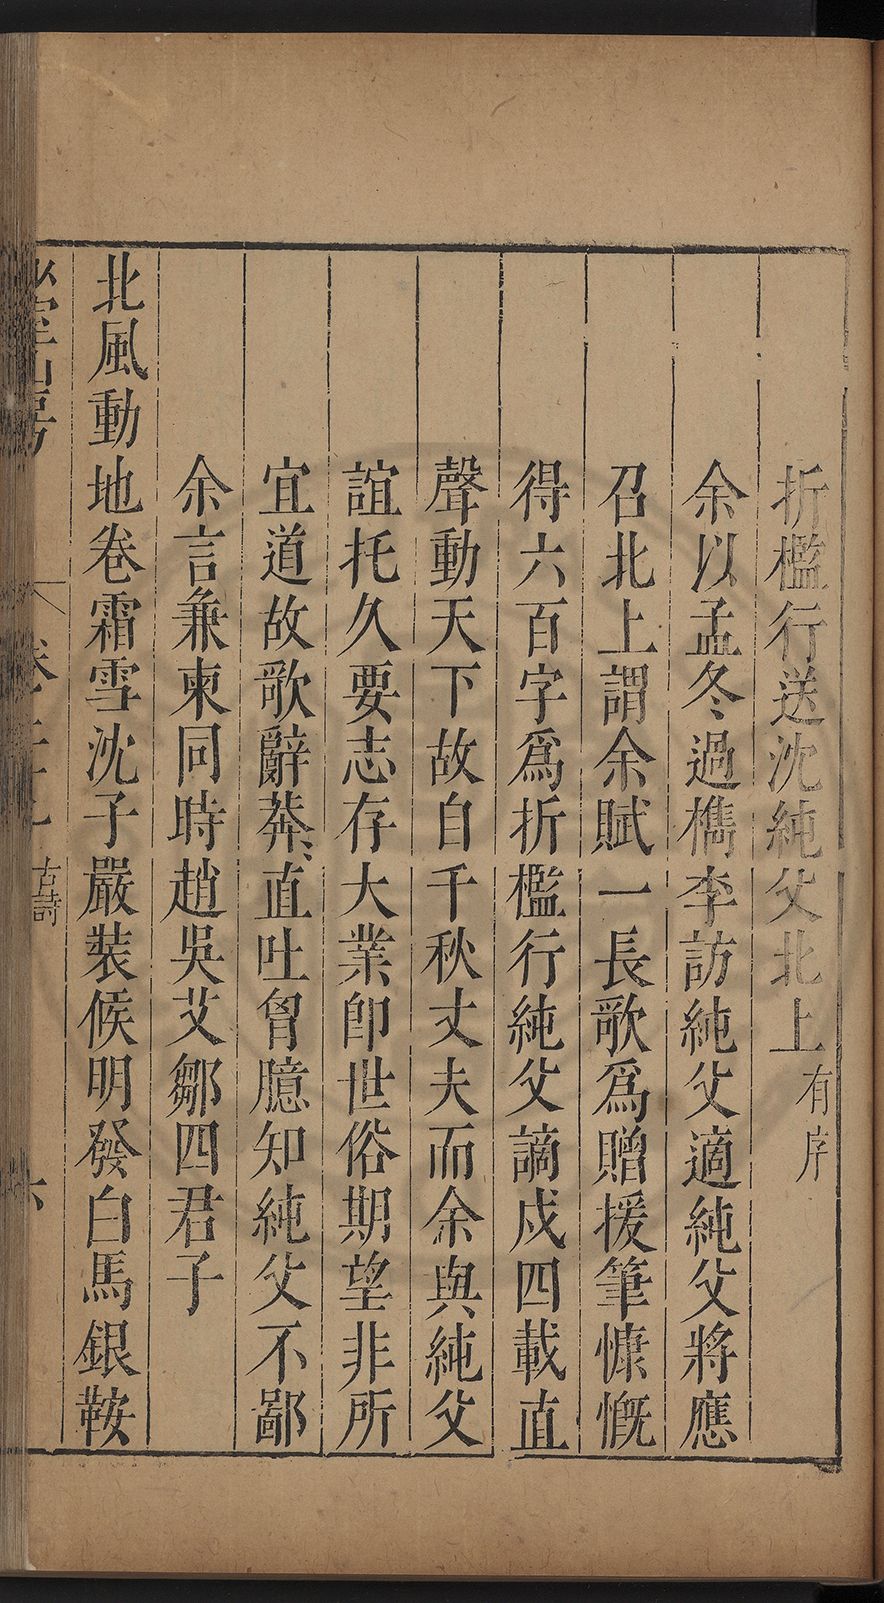 折檻行送沈純父北上有序
余以孟冬過檇李訪純父適純父將應
召北上謂余賦一長歌爲贈援筆慷慨
得六百字爲折檻行純父謫戍四載直
聲動天下故自千秋丈夫而余與純父
誼托久要志存大業卽世俗期望非所
宜道故歌辭莽〻直吐胷臆知純父不鄙
余言兼柬同時趙吳艾鄒四君子
北風動地卷霜雪沈子嚴裝候明發白馬銀鞍
山房
卷
古詩
六